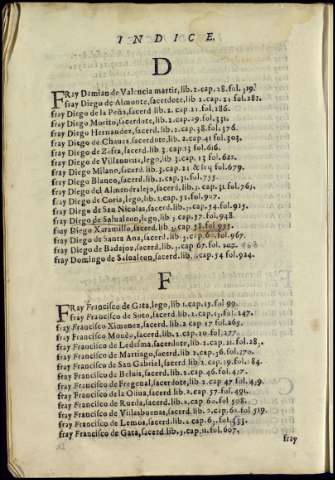 INDICE.
D
FRay Damian de Valencia martir, lib. 2. cap. 28. fol. 319.
fray Diego de Almonte, sacerdote, lib 2. cap. 21. fol. 281.
fray Diego de la Peña, sacerd. lib. 2. cap. 21. fol. 286.
fray Diego Morito, sacerdote, lib. 2. cap. 29. fol. 331.
fray Diego Hernandez, sacerd. lib. 2. cap. 38. fol. 376.
fray Diego de Chaues, sacerdote, lib. 2. cap. 41 fol. 303.
fray Diego de Zafra, sacerd. lib. 3. cap. 13 fol. 616.
fray Diego de Villanueua, lego, lib 3. cap. 13 fol. 621.
fray Diego Milano, sacerd. lib 3. cap. 21 & seq fol. 679.
fray Diego Blanco, sacerd. lib. 2. cap. 31. fol. 755.
fray Diego del Almendralejo, sacerd. lib. cap. 31 fol. 765.
fray Diego de Coria, lego, lib. cap. 52. fol. 907.
fray Diego de San Nicolas, sacerd. lib. cap. 54. fol. 925.
fray Diego de Salualeon, lego, lib 3. cap. 57 fol. 948.
fray Diego Xaramillo, sacerd. lib. 3. cap. 58. fol. 955.
fray Diego de Santa Ana, sacerd. lib 3. cap. 60. fol. 967.
fray Diego de Badajoz, sacerd. lib. cap. 67. fol.
fray Domingo de Salualeon, sacerd. lib. cap. 54 fol. 924.
F
FRay Francisco de Gata, lego, lib 1. cap. 15. fol 99.
fray Francisco de Soto, sacerd. lib 2. cap. 15. fol. 247.
fray Francisco Ximenez, sacerd. lib. 2. cap 17 fol. 265.
fray Francisco Monso, sacerd. lib 2. cap. 20. fol. 277.
fray Francisco de Ledesma, sacerdote, lib 2. cap. 21. fol. 28
fray Francisco de Martiago, sacerd. lib 2. cap. 36. fol. 370.
fray Francisco de San Gabriel, sacerd. lib 2. cap. fol. 384.
fray Francisco de Beluis, sacerd. lib 2. cap. 46. fol. 417.
fray Francisco de Fregenal, sacerdote, lib 2. cap 47 fol. 419.
fray Francisco de la Oliua, sacerd. lib 2. cap. 57. fol. 491.
fray Francisco de Rueda, sacerd. lib. 2. cap. 60. fol. 508.
fray Francisco de Villasbuenas, sacerd. lib. 2. cap. 62. fol. 519.
fray Francisco de Lemos, sacerd. lib. 2. cap. 63. fol. 533.
fray Francisco de Gata, sacerd. lib. 3. cap. 11. fol. 607.
fray